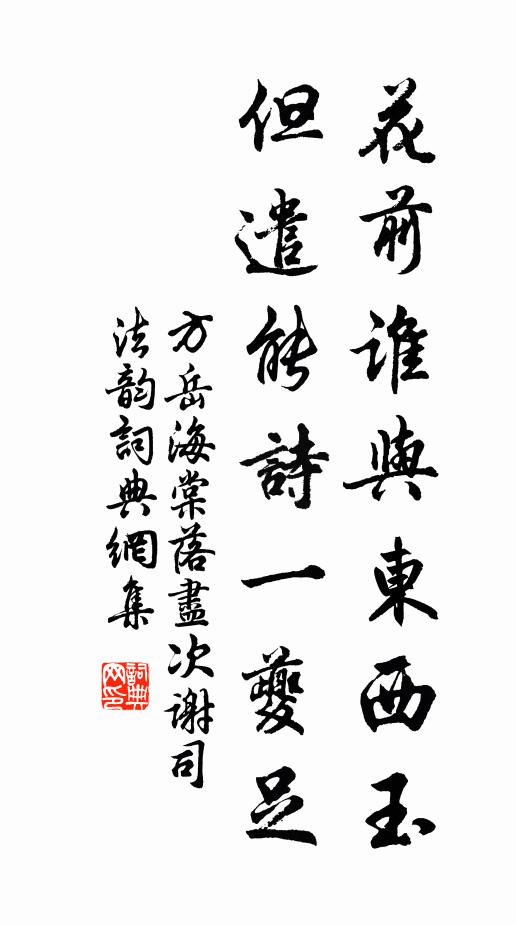 花前誰與東西玉
但遣能詩一夔足
方岳海棠落盡次謝司
法韵詞典網集
詞典网印